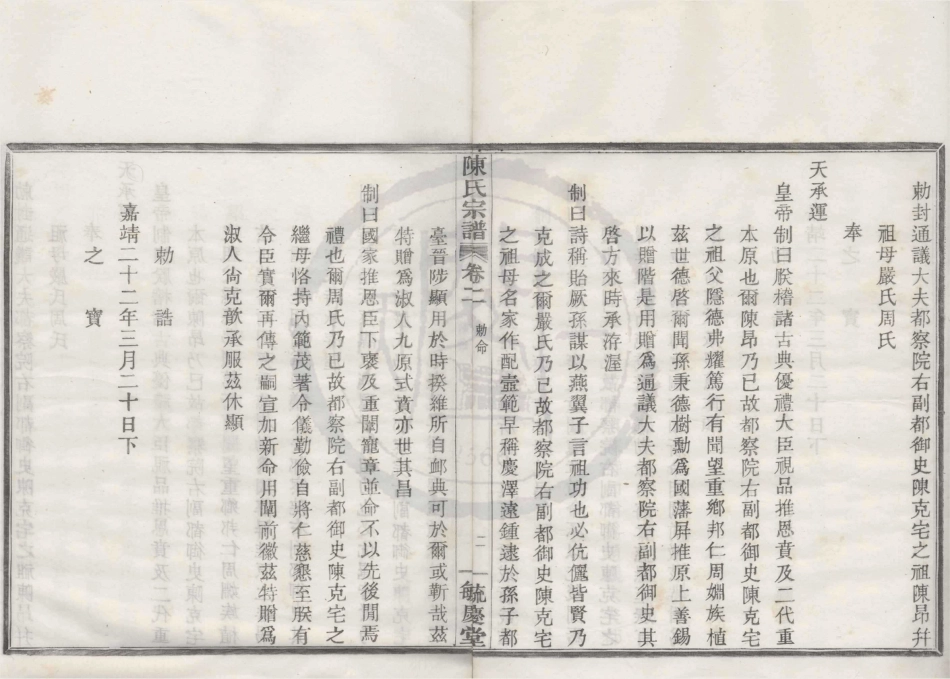 勅封通議大夫都察院右副都御史陳克宅之祖陳昂幷
祖母嚴氏周氏
奉
天承運
皇帝制曰朕稽諸古典優禮大臣視品推恩賁及二代重
本原也爾陳昂乃已故都察院右副都御史陳克宅
之祖父隱德弗耀篤行有聞望重鄉邦仁周婣族植
茲世德啓爾聞孫秉德樹勳爲國藩屏推原上善錫
以贈階是用贈爲通議大夫都察院右副都御史其
啓方來時承洊渥
制曰詩稱貽厥孫謀以燕翼子言祖功也必伉儷皆賢乃
克成之爾嚴氏乃已故都察院右副都御史陳克宅
之祖母名家作配壼範早稱慶澤遠鍾逮於孫子都
陳氏宗譜 卷二 勅命 二 毓慶堂
臺晉陟顯用於時揆維所自卹典可於爾或靳哉茲
特贈爲淑人九原式賁亦世其昌
制曰國家推恩臣下褒及重闈寵章並命不以先後閒焉
禮也爾周氏乃已故都察院右副都御史陳克宅之
繼母恪持內範茂著令儀勤儉自將仁慈懇至朕有
令臣實爾再傳之嗣宣加新命用闡前徽茲特贈爲
淑人尙克歆承服茲休顯
勅誥
嘉靖二十二年三月二十日下
之寶